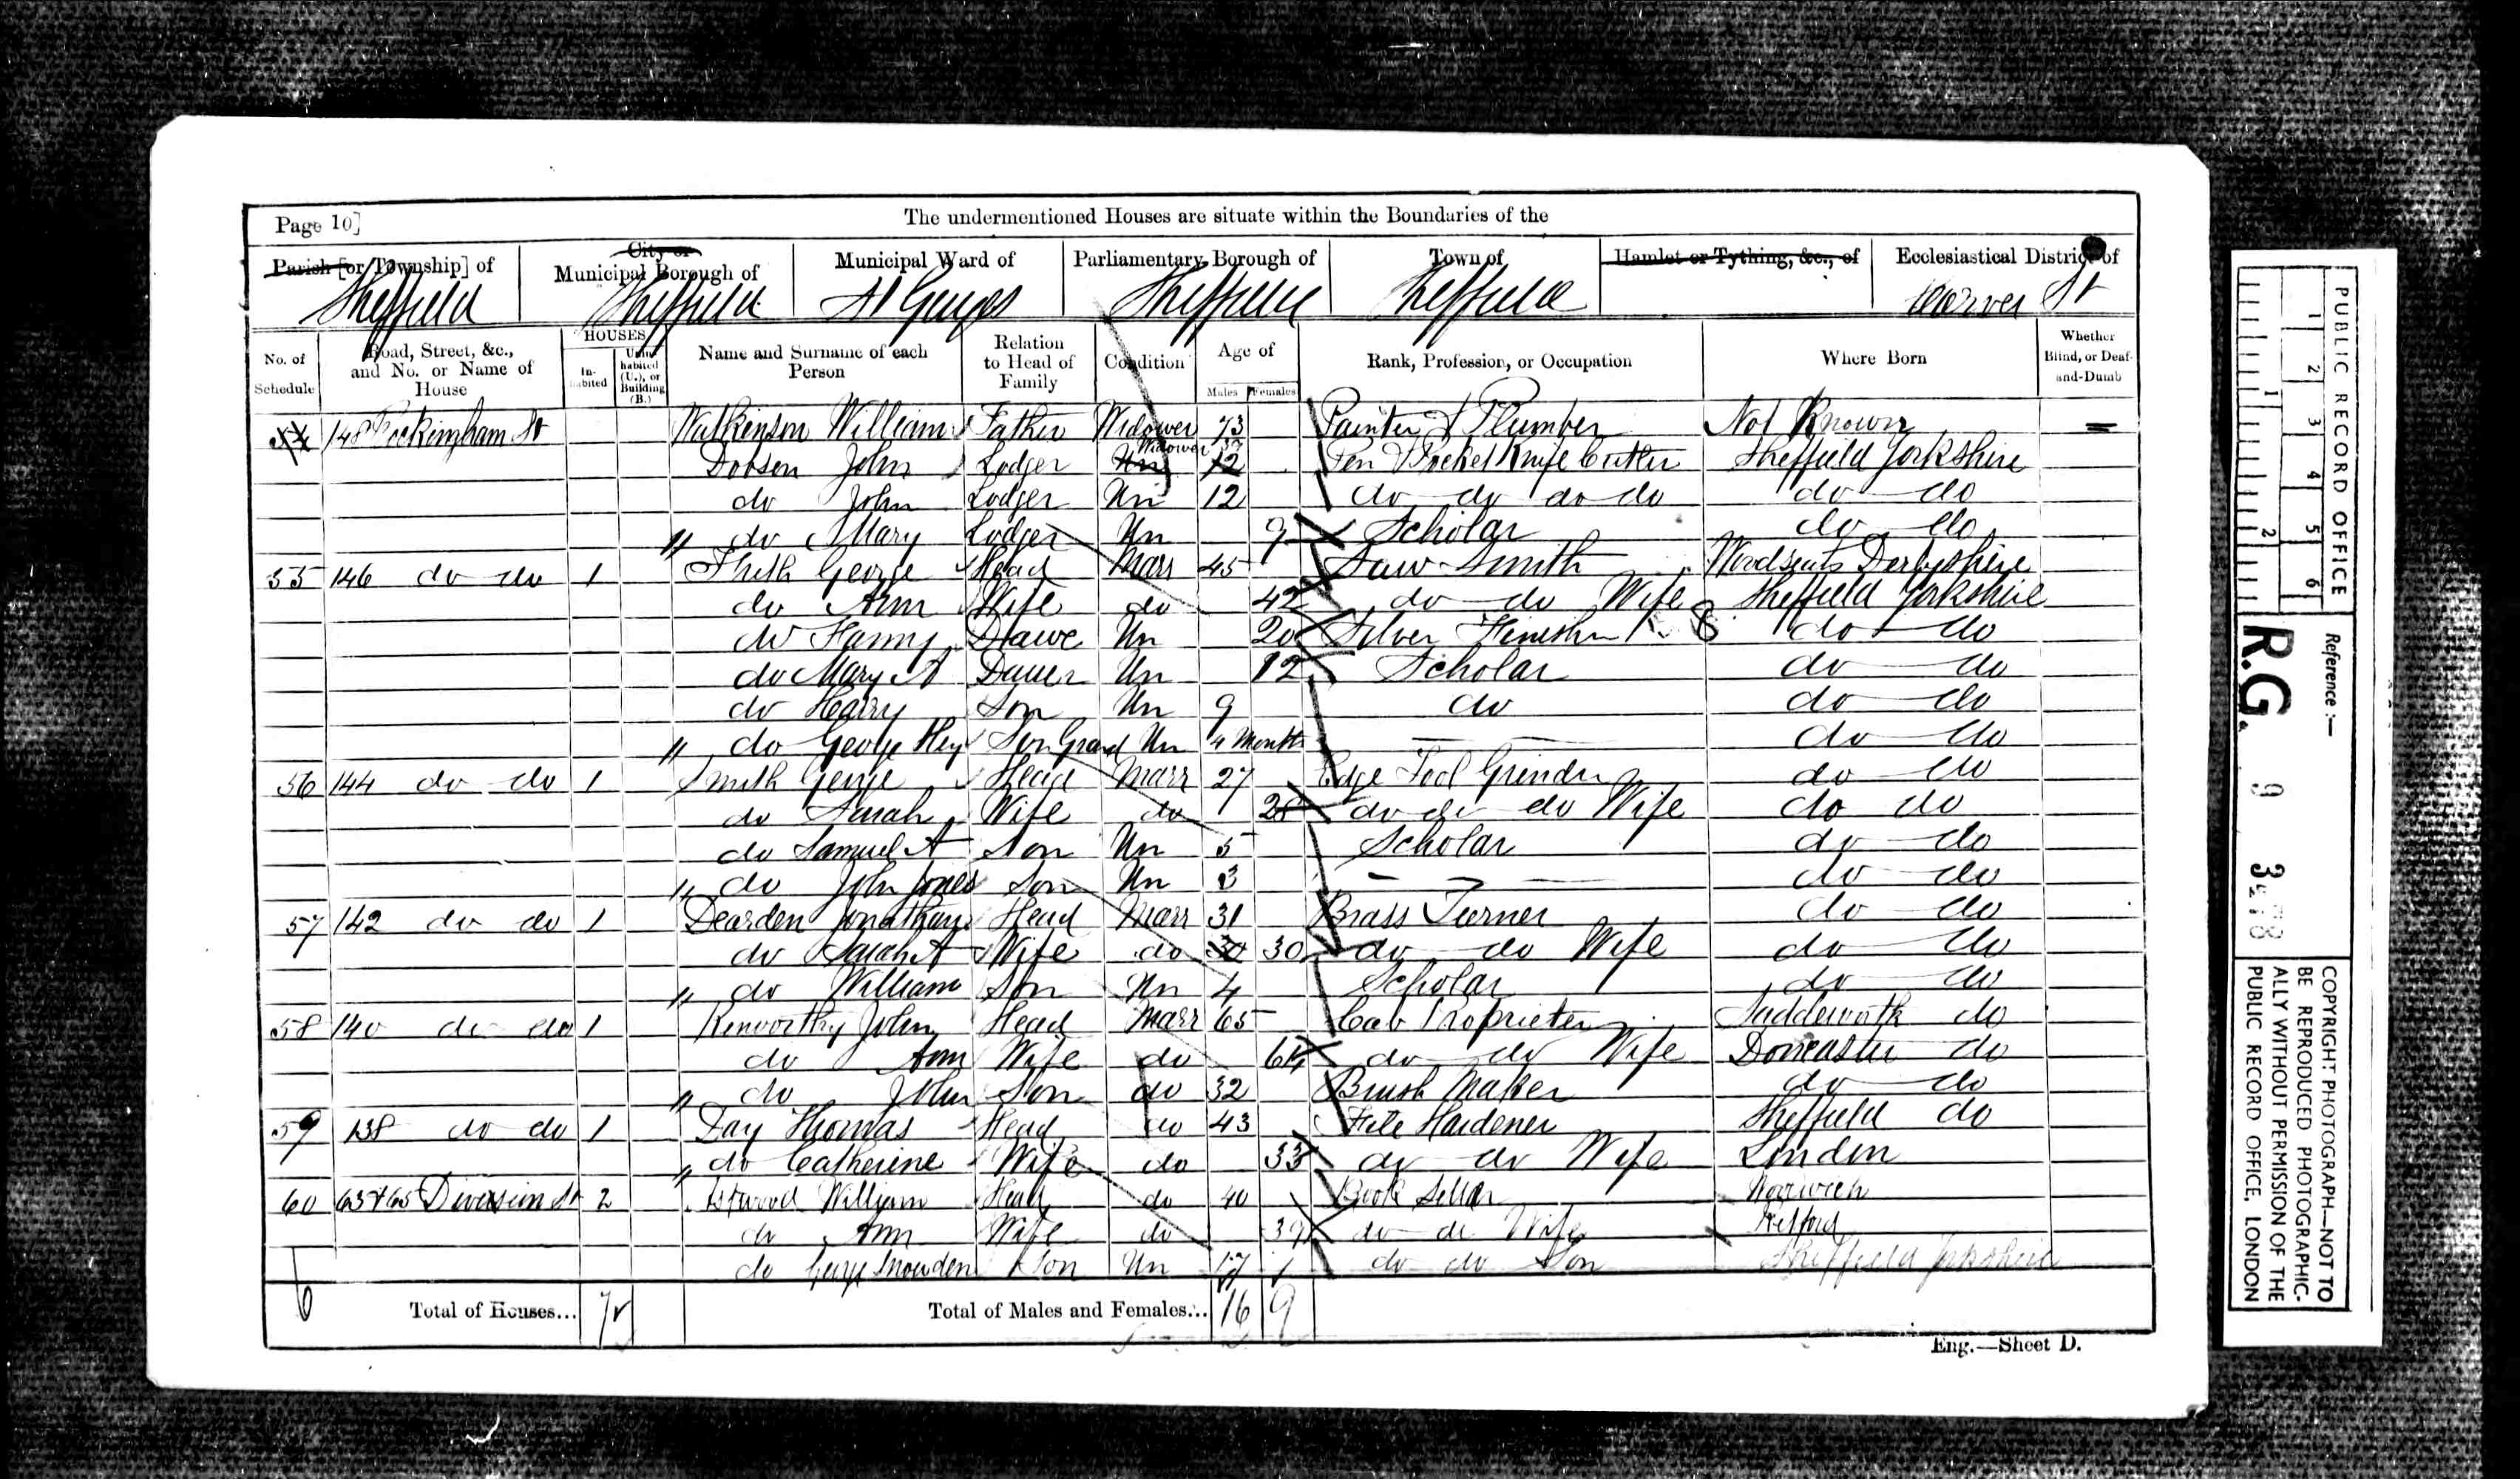 Page 10]
The undermentioned Houses are situate within the Boundaries of the
Parish [or Township] of
City or Municipal Borough of
Municipal Ward of
Parliamentary Borough of
Town of
Hamlet or Tything, &c., of
Ecclesiastical District of
Sheffield Sheffield St Georges Sheffield Sheffield Carver St
No. of Schedule
Road, Street, &c., and No. or Name of House
HOUSES
In-habited
Unin-habited (U.), or Building (B.)
Name and Surname of each Person
Relation to Head of Family
Condition
Age of
Males Females
Rank, Profession, or Occupation
Where Born
Whether Blind, or Deaf-and-Dumb
54 148 Rockingham St Watkinson William Father Widower 73 Painter & Plumber Not Known
Dobson John Lodger Un Widower 12 37 Pen & Pocket Knife Cutler Sheffield Yorkshire
do John Lodger Un 12 do do do do do do
" do Mary Lodger Un 9 Scholar do do
55 146 do do 1 George Head Marr 45 Saw Smith Woodseats Derbyshire
do Ann Wife do 42 do do Wife Sheffield Yorkshire
do Un 20 Silver do do
do Mary A Dauer Un 12 Scholar do do
do Harry Son Un 9 do do do
" do George Hy Son Grand Un 4 Months do do
56 144 do do 1 Smith George Head Marr 27 Edge Tool Grinder do do
do Sarah Wife do 28 do do do Wife do do
do Samuel A Son Un 5 Scholar do do
" do John Jones Son Un 3 do do
57 142 do do 1 Dearden Jonathan Head Marr 31 Brass Turner do do
do Sarah A Wife do 30 30 do do Wife do do
" do William Son Un 4 Scholar do do
58 140 do do 1 Kenworthy John Head Marr 65 Cab Proprieter Saddleworth do
do Ann Wife do 64 do do Wife Doncaster do
" do John Son do 32 Brush Maker do do
59 138 do do 1 Day Thomas Head do 43 File Hardener Sheffield do
" do Catherine Wife do 33 do do Wife London
60 63 & 65 Division St 2 William Head do 40 Book Seller Norwich
do Ann Wife do 39 do do Wife Retford
do George Snowden Son Un 17 do do Son Sheffield Yorkshire
6 Total of Houses... 7 Total of Males and Females... 16 9
Eng.—Sheet D.
PUBLIC RECORD OFFICE
1 2 3 4 5 6
1 2
Reference :—
R.G. 9
COPYRIGHT PHOTOGRAPH—NOT TO
BE REPRODUCED PHOTOGRAPHIC-
ALLY WITHOUT PERMISSION OF THE
PUBLIC RECORD OFFICE, LONDON